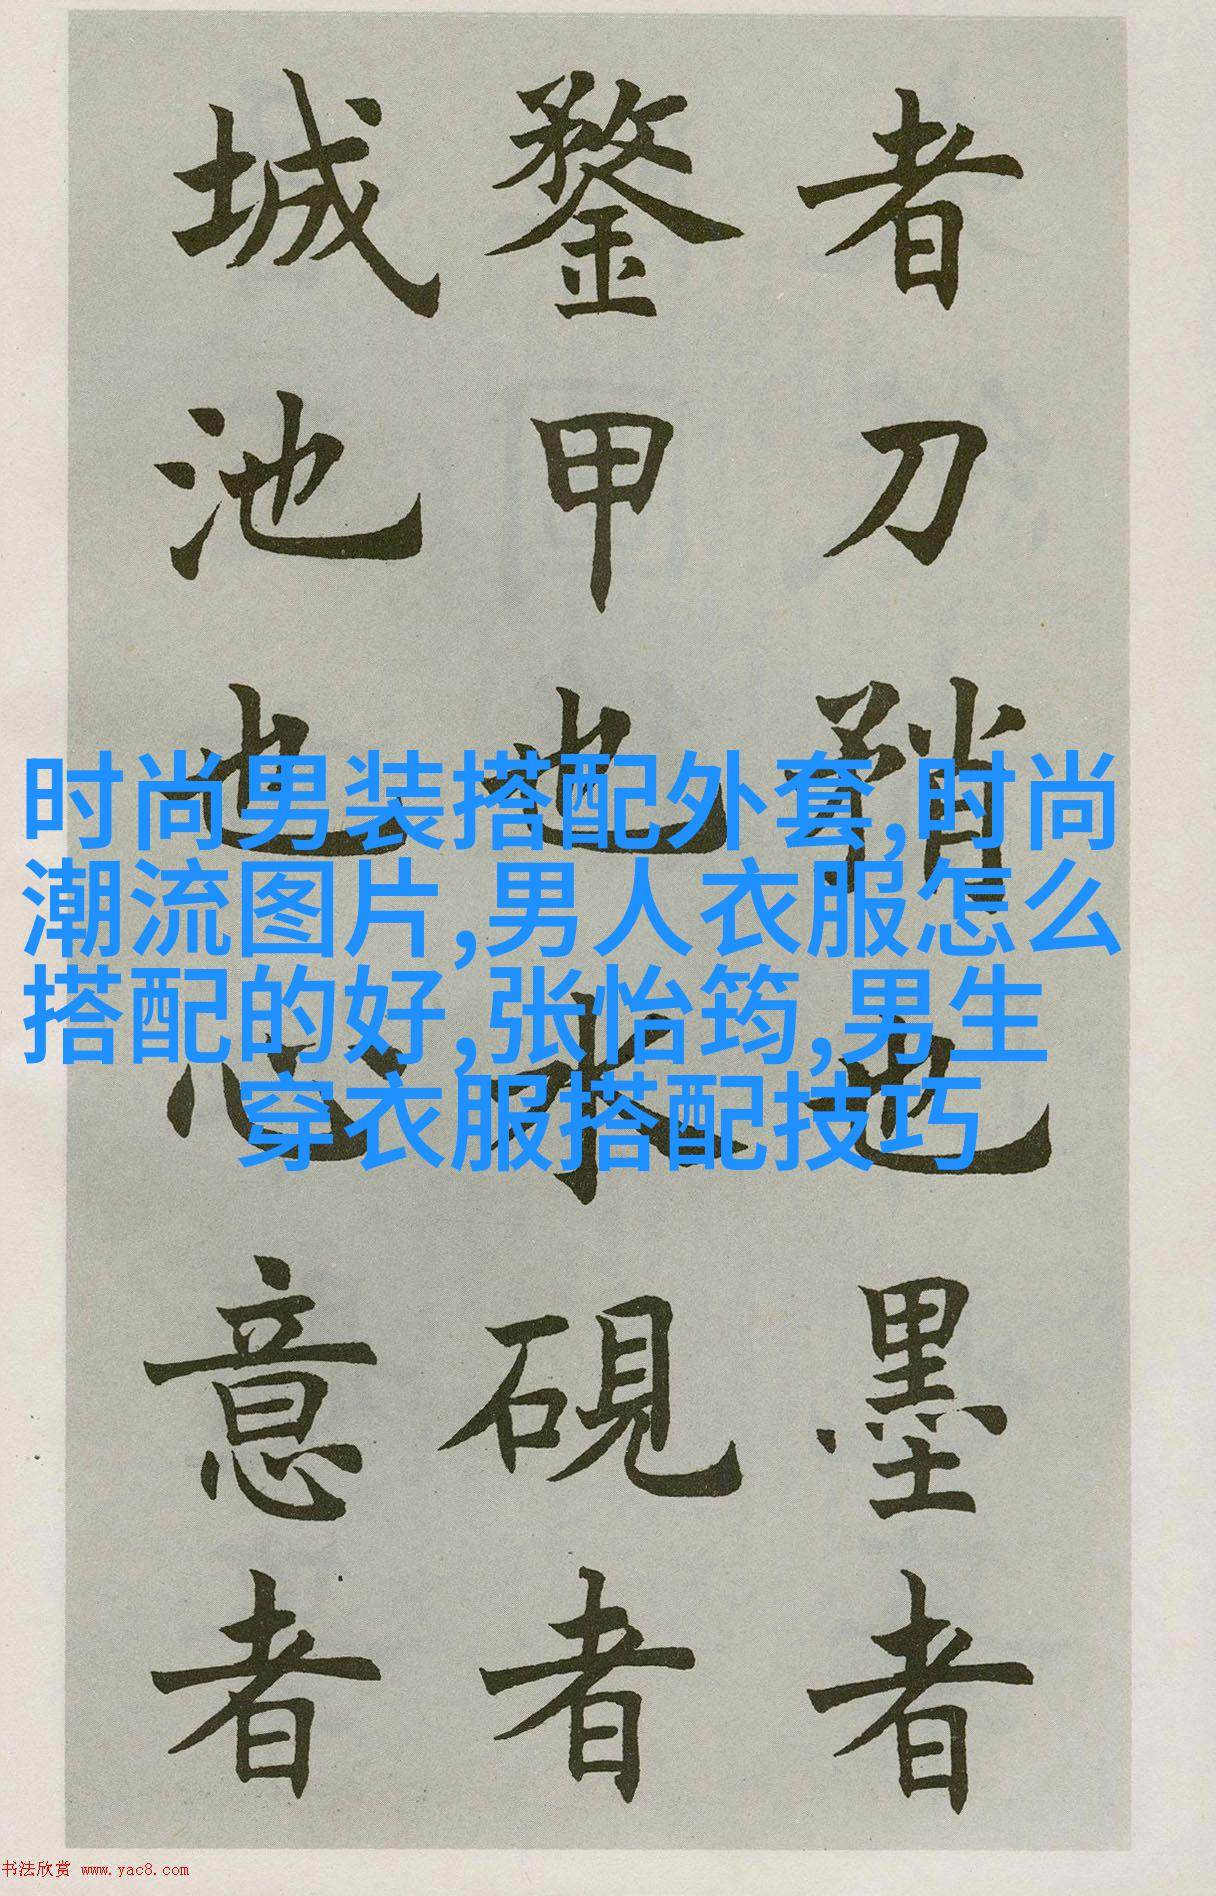 者刀矟也墨者
鍪甲也水硯者
城池也心意者
时尚男装搭配外套,时尚
潮流图片,男人衣服怎么
搭配的好,张怡筠,男生
穿衣服搭配技巧
书法欣赏 www.yac8.com